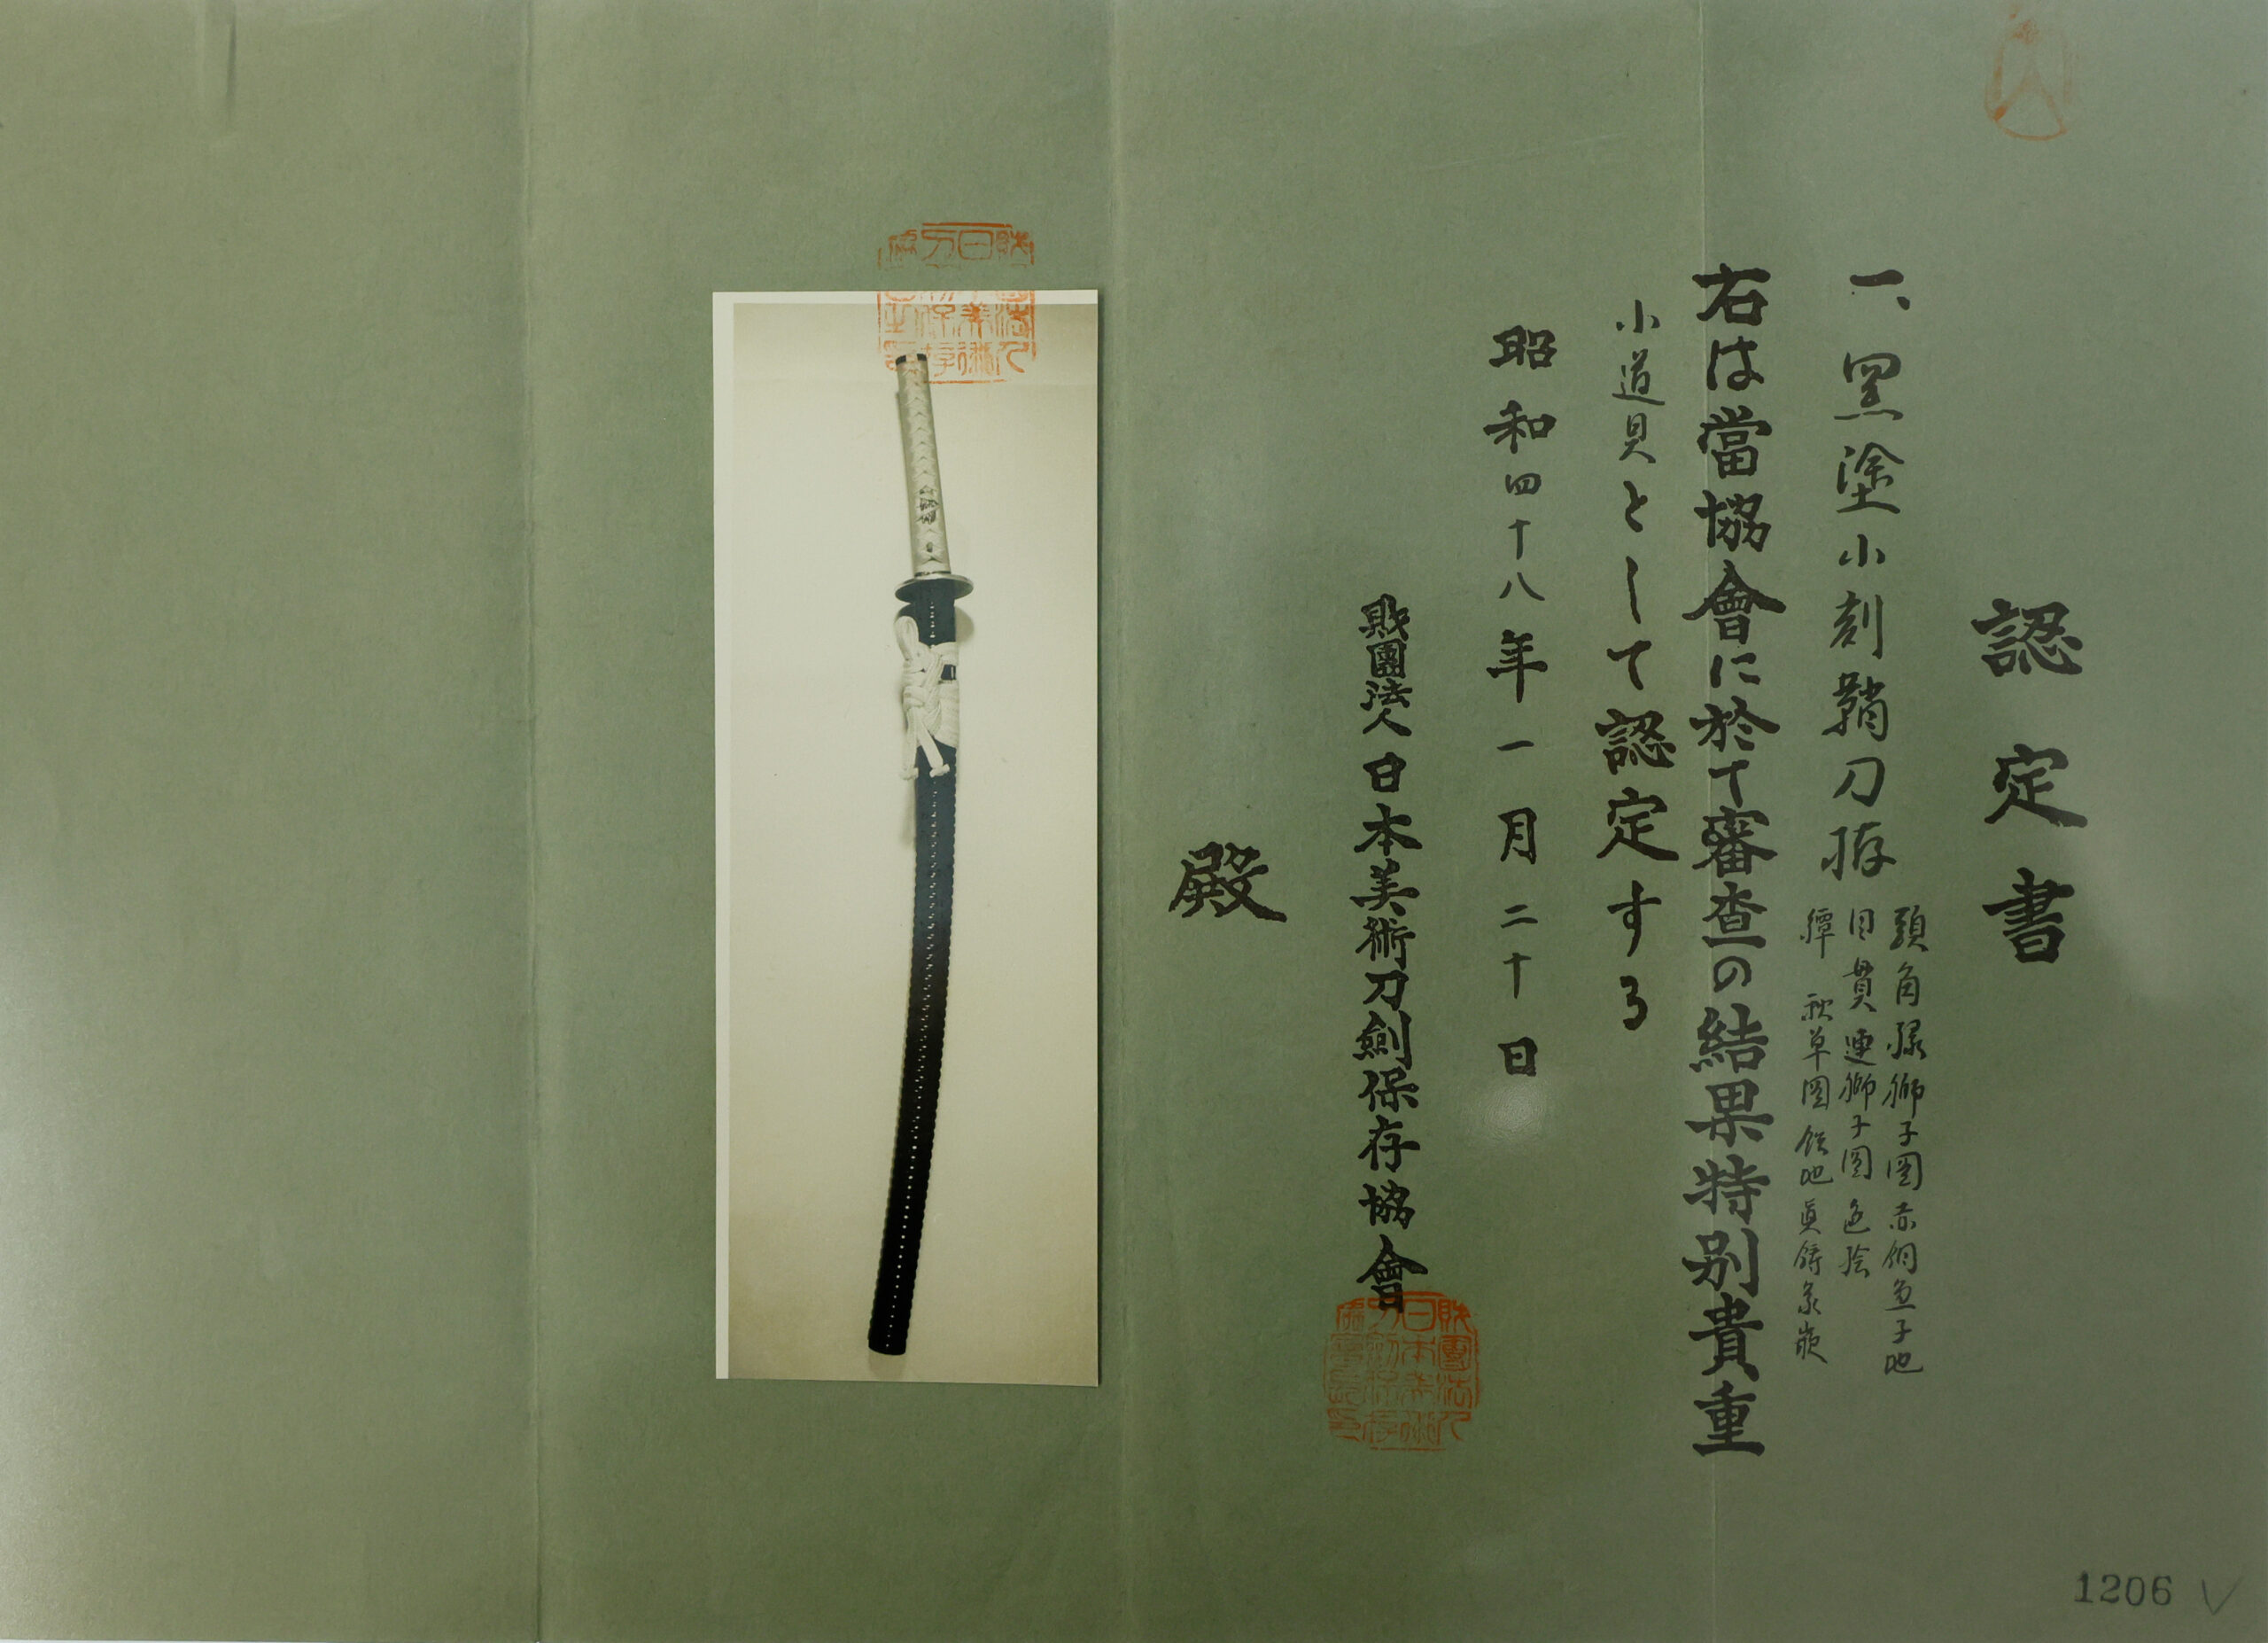 認定書
一、黒塗小刻鞘刀拵
頭角縁獅子図赤銅魚子地
目貫連獅子図色絵
鐔 秋草図鉄地真鍮象嵌
右は當協會に於て審査の結果特別貴重
小道具として認定する
昭和四十八年一月二十日
財團法人日本美術刀劍保存協會
殿
1206